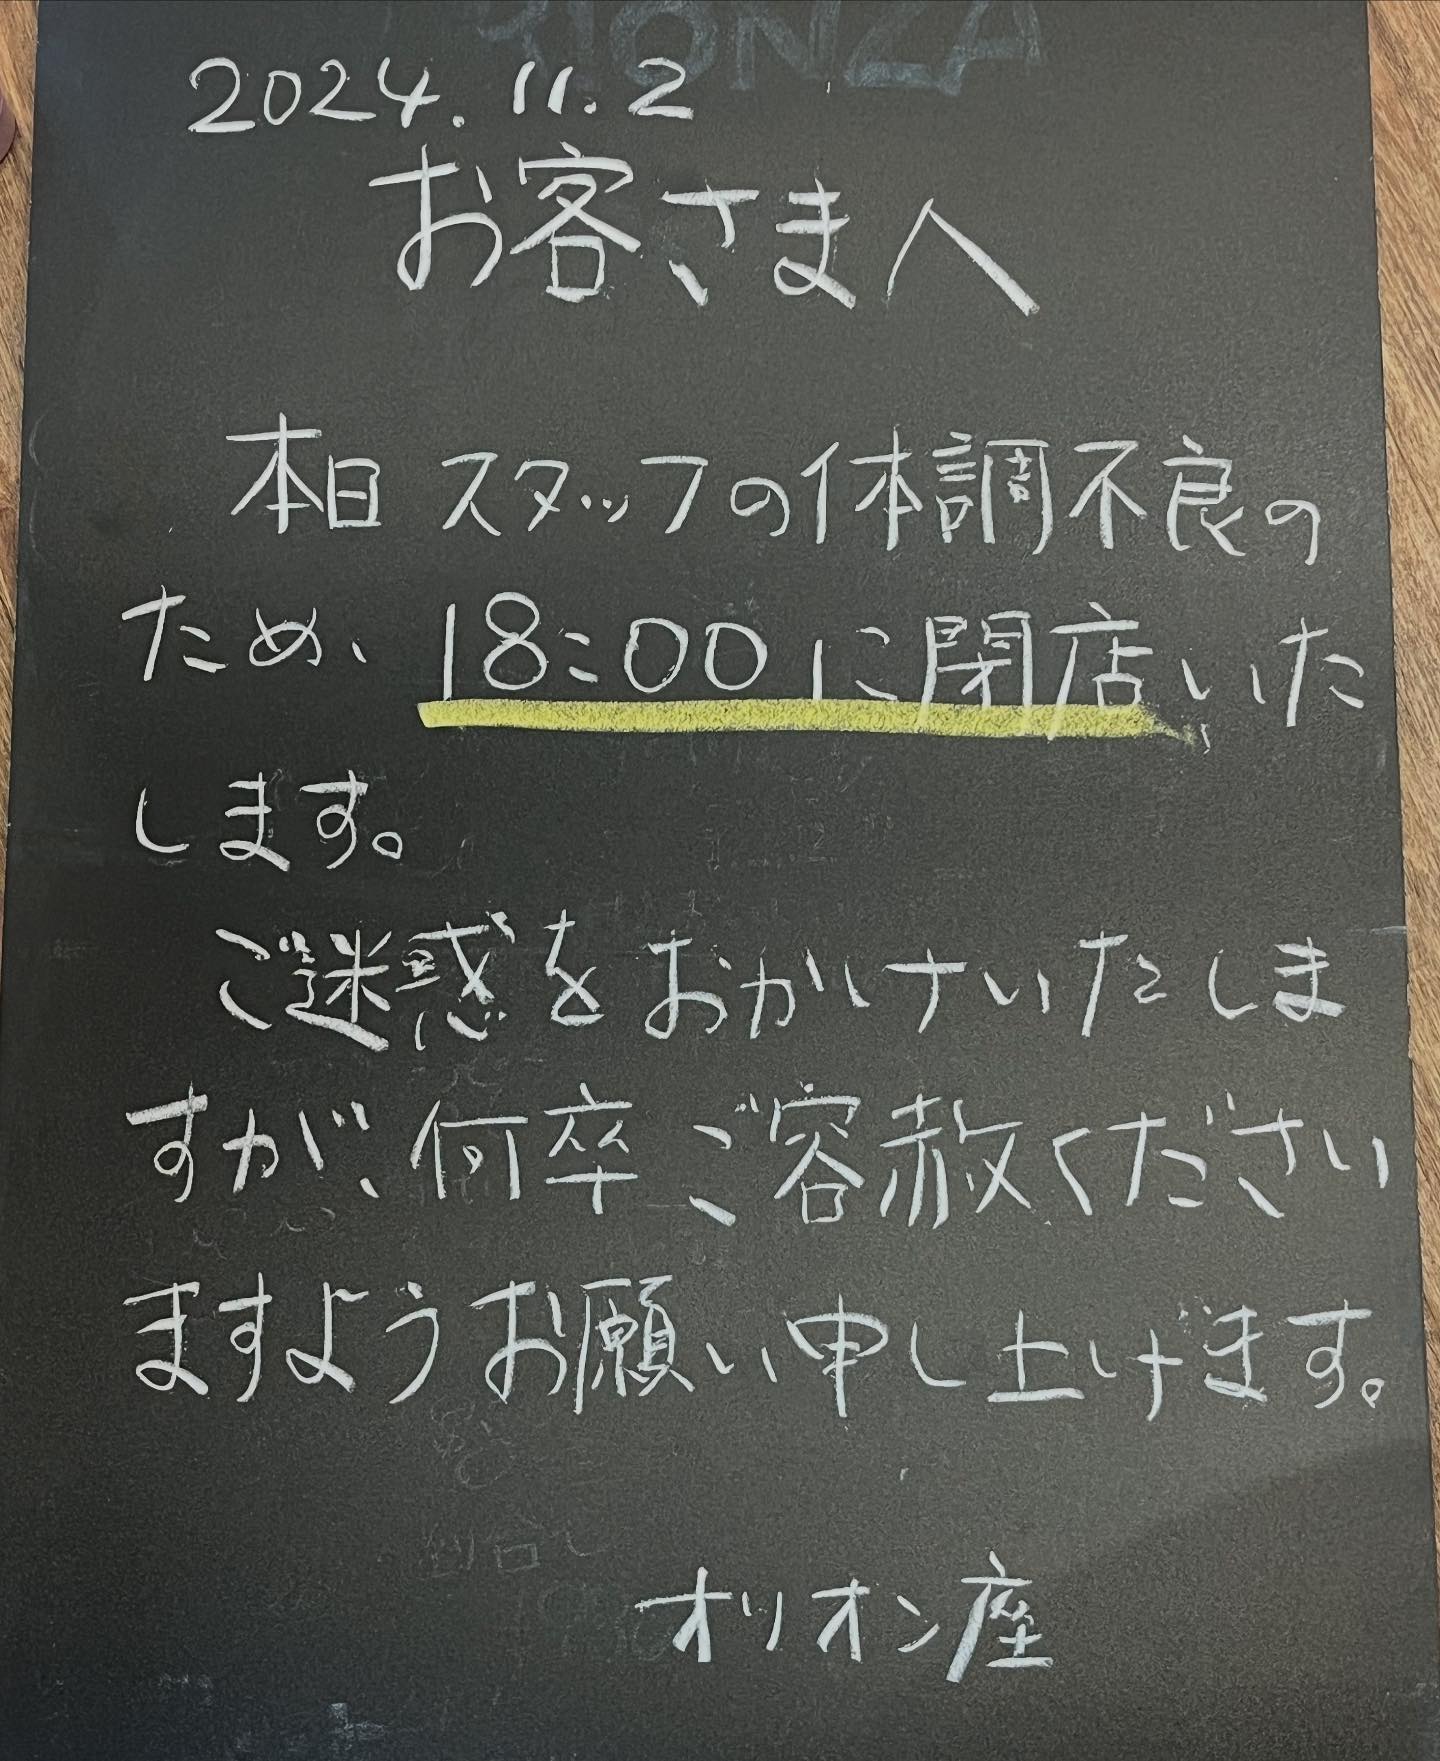 2024.11.2
お客さまへ
本日スタッフの体調不良の
ため、18:00に閉店いた
します。
ご迷惑をおかけいたしま
すが、何卒ご容赦ください
ますようお願い申し上げます。
オリオン座